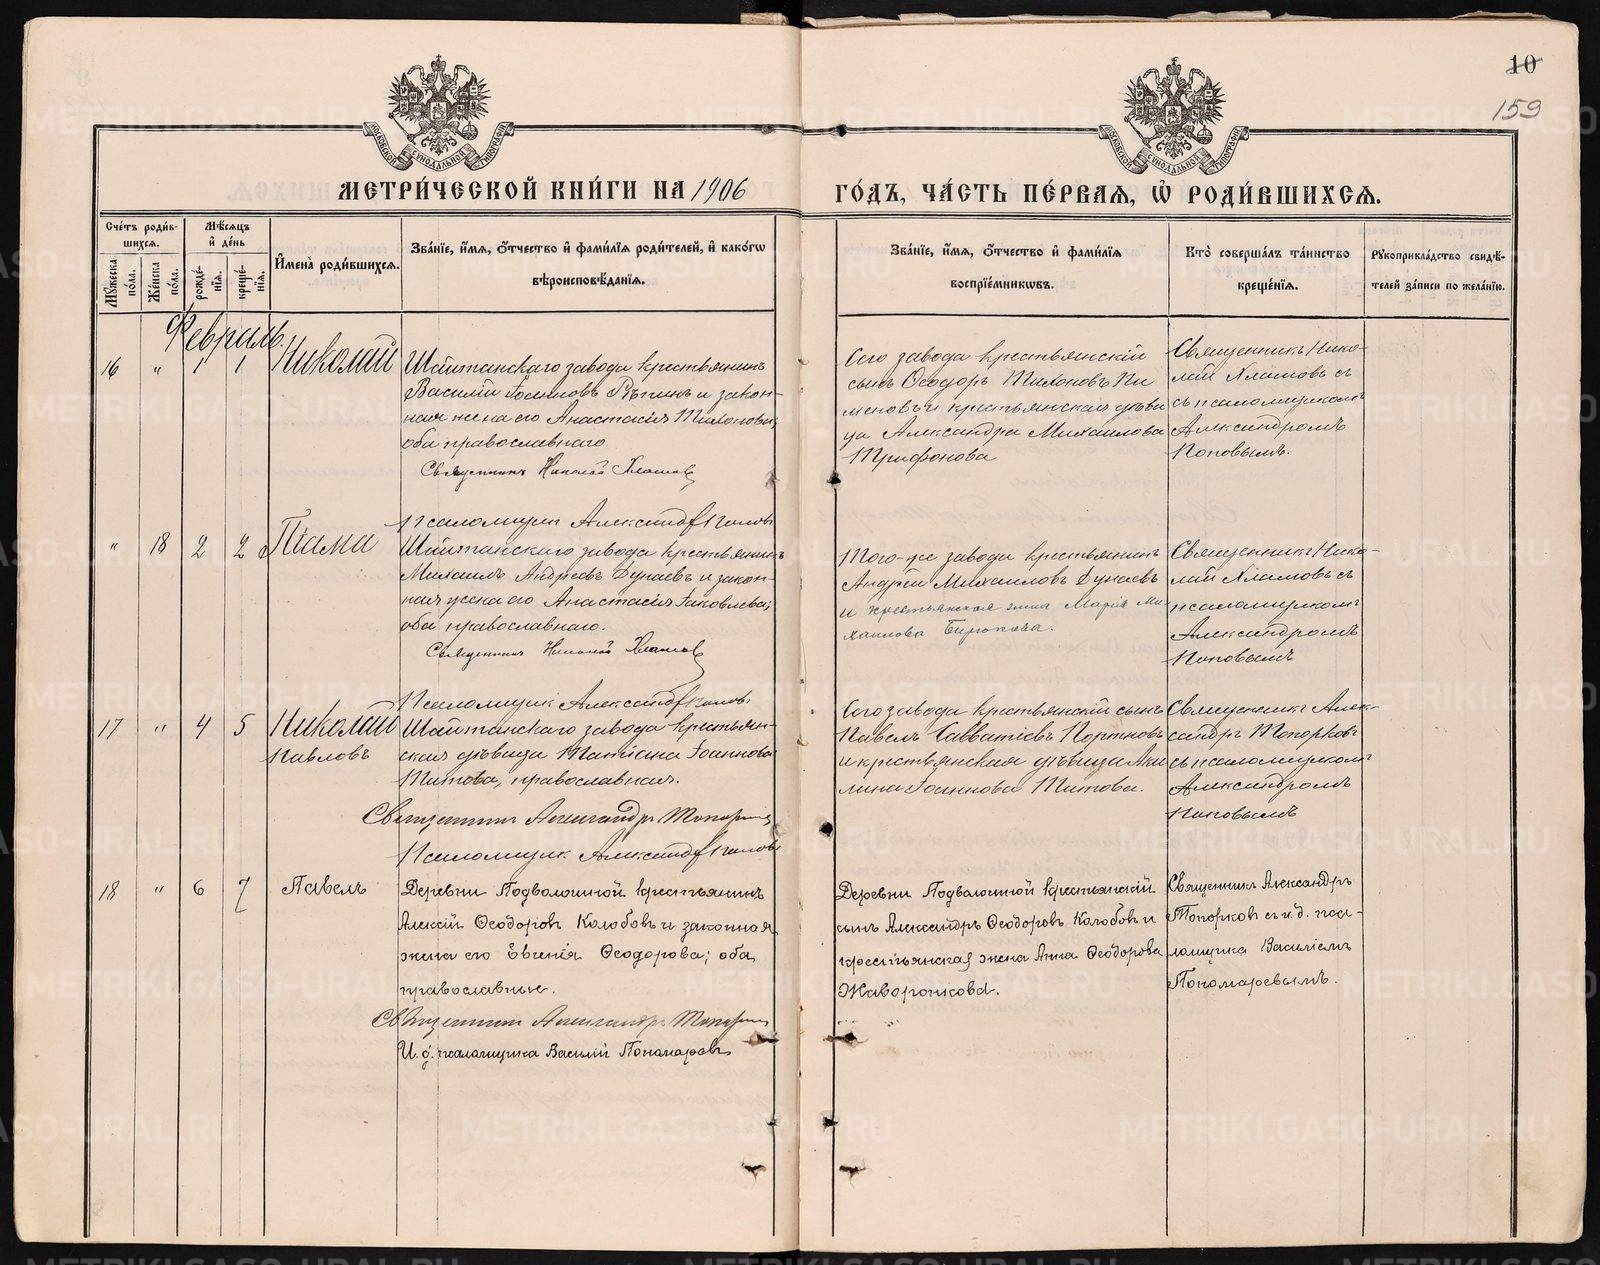 10
159
МОСКОВСКОЙ СѴНОДАЛЬНОЙ ТИПОГРАФІИ
МОСКОВСКОЙ СѴНОДАЛЬНОЙ ТИПОГРАФІИ
МЕТРИ́ЧЕСКОЙ КНИ́ГИ НА 1906
ГО́ДЪ, ЧА́СТЬ ПЕ́РВАЯ, Ѡ҆ РОДИ́ВШИХСѦ.
Сче́тъ роди́в-
шихсѧ.
Мѣ́сѧцъ
и҆ де́нь
Мꙋ́жеска по́ла.
Же́нска по́ла.
рожде́-
нїѧ.
креще́-
нїѧ.
И҆мена̀ роди́вшихсѧ.
Зва́нїе, и҆́мѧ, ѻ҆́тчество и҆ фами́лїѧ роди́телей, и҆ како́гѡ
вѣроисповѣ́данїѧ.
Зва́нїе, и҆́мѧ, ѻ҆́тчество и҆ фами́лїѧ
воспрїе́мникѡвъ.
Кто̀ соверша́лъ та́инство
креще́нїѧ.
Рꙋкоприкла́дство свидѣ́-
телей за́писи по жела́нїю.
Февраль.
16 " 1 1 Николай
Шайтанскаго завода крестьянинъ
Василій Іоанновъ и закон-
ная жена его Анастасія Тихонова,
оба православнаго.
Священникъ Николай Хламов
Псаломщик Александр Попов
Сего завода крестьянскій
сынъ Ѳеодоръ Тихоновъ Пи
меновъ и крестьянская дѣви
ца Александра Михаилова
Трифонова
Священникъ Нико-
лай Хламовъ съ
съ псаломщикомъ
Александромъ
Поповымъ.
" 18 2 2 Піама
Шайтанскаго завода крестьянинъ
Михаилъ Андреевъ Дунаевъ и закон-
ная жена его Анастасія Іаковлева;
оба православнаго.
Священникъ Николай Хламов
Псаломщик Александр Попов
Того-же завода крестьянинъ
Андрей Михаиловъ Дунаевъ
и крестьянская жена Марія Ми-
хаилова Бирюкова.
Священникъ Нико-
лай Хламовъ съ
псаломщикомъ
Александромъ
Поповымъ
17 " 4 5 Николай
Павловъ
Шайтанскаго завода крестьян-
ская дѣвица Татіана Іоаннова
Титова, православная.
Священник Александръ Топорков
Псаломщик Александр Попов
Сего завода крестьянскій сынъ
Павелъ Савватіевъ Портновъ
и крестьянская дѣвица Аки
лина Іоаннова Титова.
Священникъ Алек-
сандръ Топорковъ
съ псаломщикомъ
Александромъ
Поповымъ
18 " 6 7 Павелъ
Деревни Подволошной крестьянинъ
Алексій Ѳеодоровъ Колобовъ и законная
жена его Евгенія Ѳеодорова; оба
православные.
Священник Александръ Топорков
И. д. псаломщика Василій Пономаревъ
Деревни Подволошной крестьянскій
сынъ Александръ Ѳеодоровъ Колобовъ и
крестьянская жена Анна Ѳеодорова
Жаворонкова.
Священникъ Александръ
Топорковъ съ и. д. пса-
ломщика Василіемъ
Пономаревымъ.
METRIKI.GASO-URAL.RU